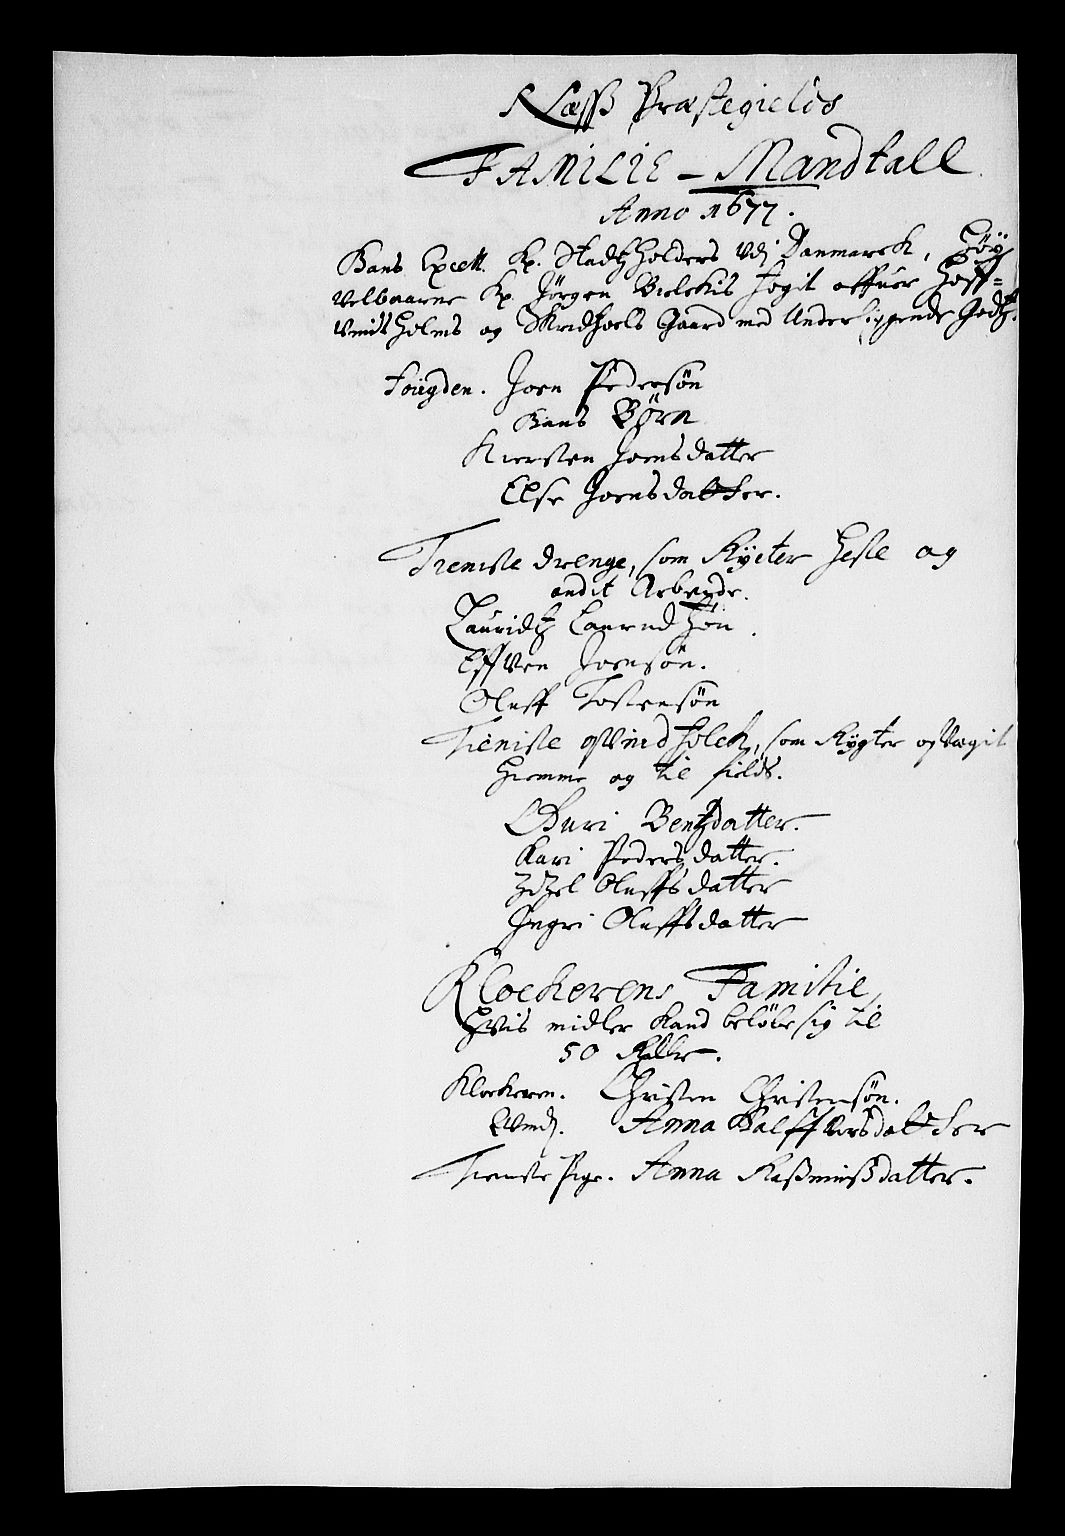 Næss Præstegields
FAMILIE - Mandtall
Anno 1677.
Hans Excell. Hr. Stadtholders Udj Danmarck, Höy
velbaarne Hr. Jörgen Bielckis fogit offuer Hoff=
vindsholms og Skridshoels Gaard med Underliggende Godtz.
Foügden. Joen Pedersøn
Hans Børn
Kiersten Joensdatter
Else Joensdatter.
Tieniste drenge, som Rycter Heste og
andit Arbeyde.
Lauridtz Laurudsøn.
Effven Joensøn.
Oluff Tostensøn
Tieniste qvindfolck, som Rygter qvægit
hiemme og til fields.
Guri Bentzdatter.
Kari Pedersdatter.
Zidzel Oluffsdatter
Ingri Oluffsdatter
Klockerens Familie,
Hvis midler kand beløbe sig til
50 Rdlr.
Klockeren. Christen Christensøn.
Qvindj. Anna Halffversdatter
Tieniste Pige. Anna Raßmußdatter.